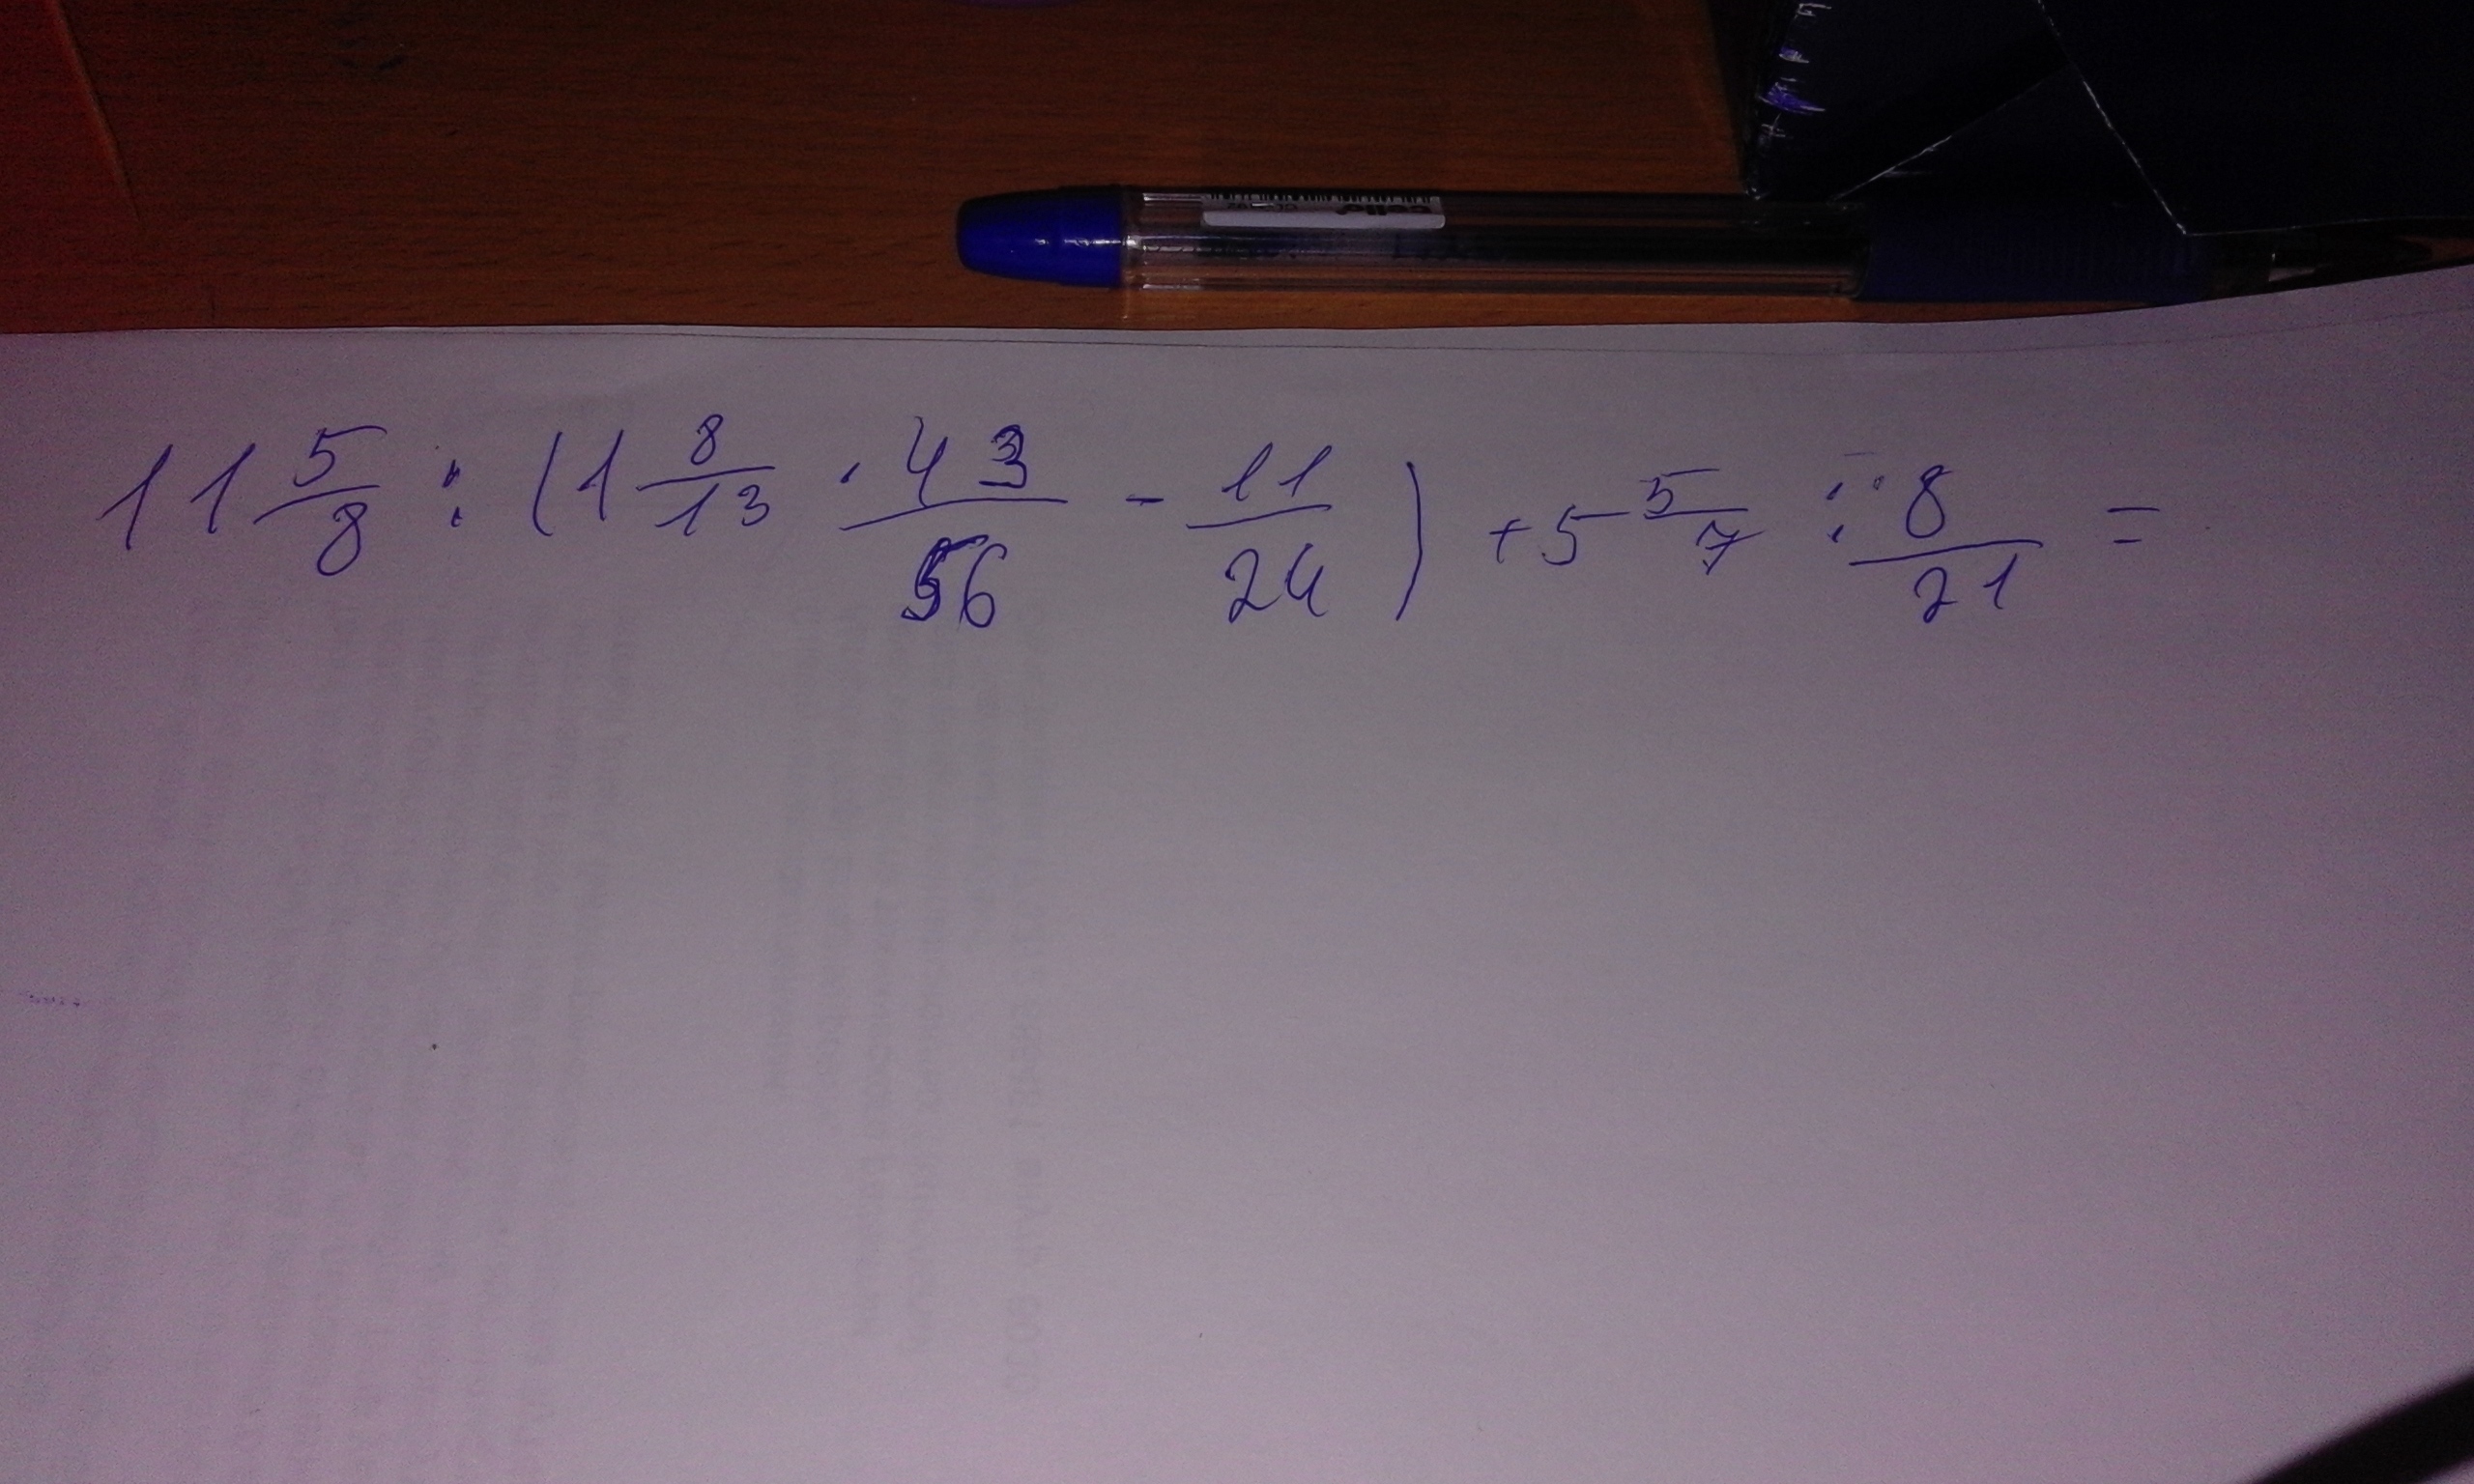 11 5/8 : (1 8/13 · 43/56 - 11/24) + 5 5/7 : 8/21 =